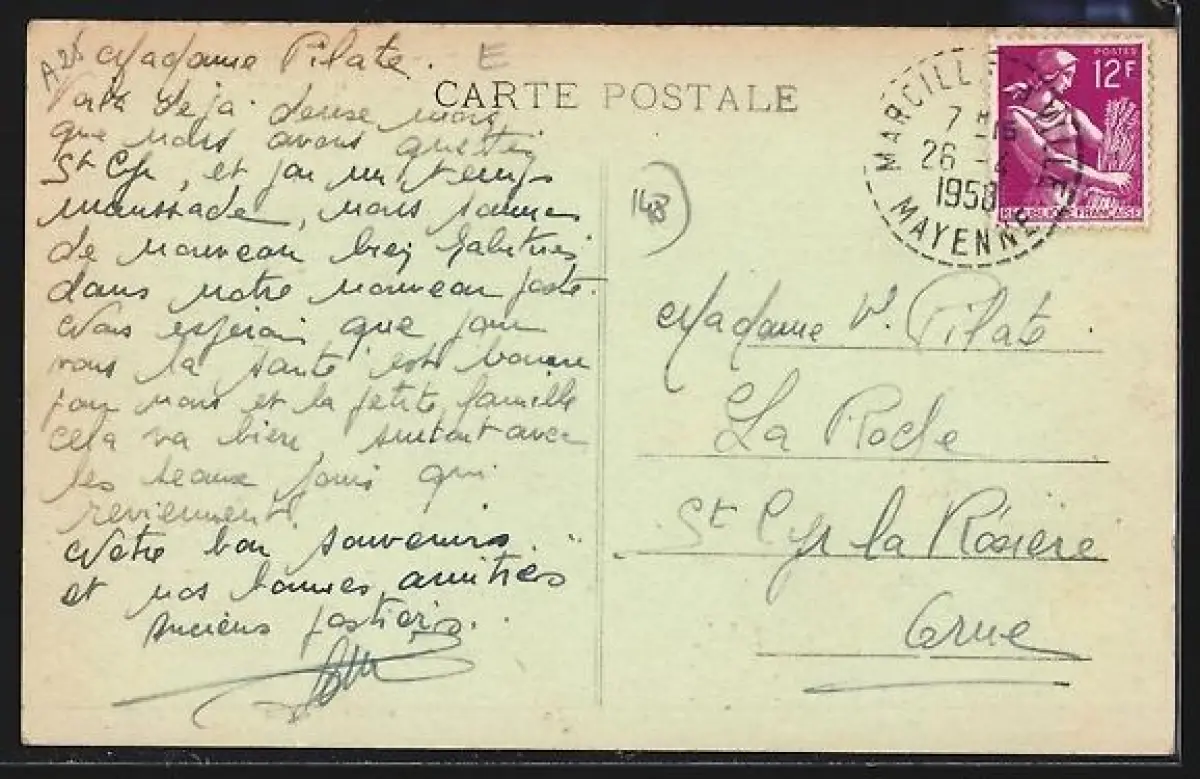 A25
Madame Pilate. E
Voilà déjà deux mois
que nous avons quitté
St Cyr, et par un temps
maussade, nous sommes
de nouveau bien habitués
dans notre nouveau poste.
Nous espérons que pour
vous la santé est bonne
pour nous et la petite famille
cela va bien, surtout avec
les beaux jours qui
reviennent.
Notre bon souvenirs
et nos bonnes amitiés
Anciens postiers.
CARTE POSTALE
148
MARCILL VILLE
7 H
26 -
1958
MAYENNE
POSTES
12F
REPUBLIQUE FRANÇAISE
Madame V. Pilate.
La Roche
St Cyr la Rosière
Orne